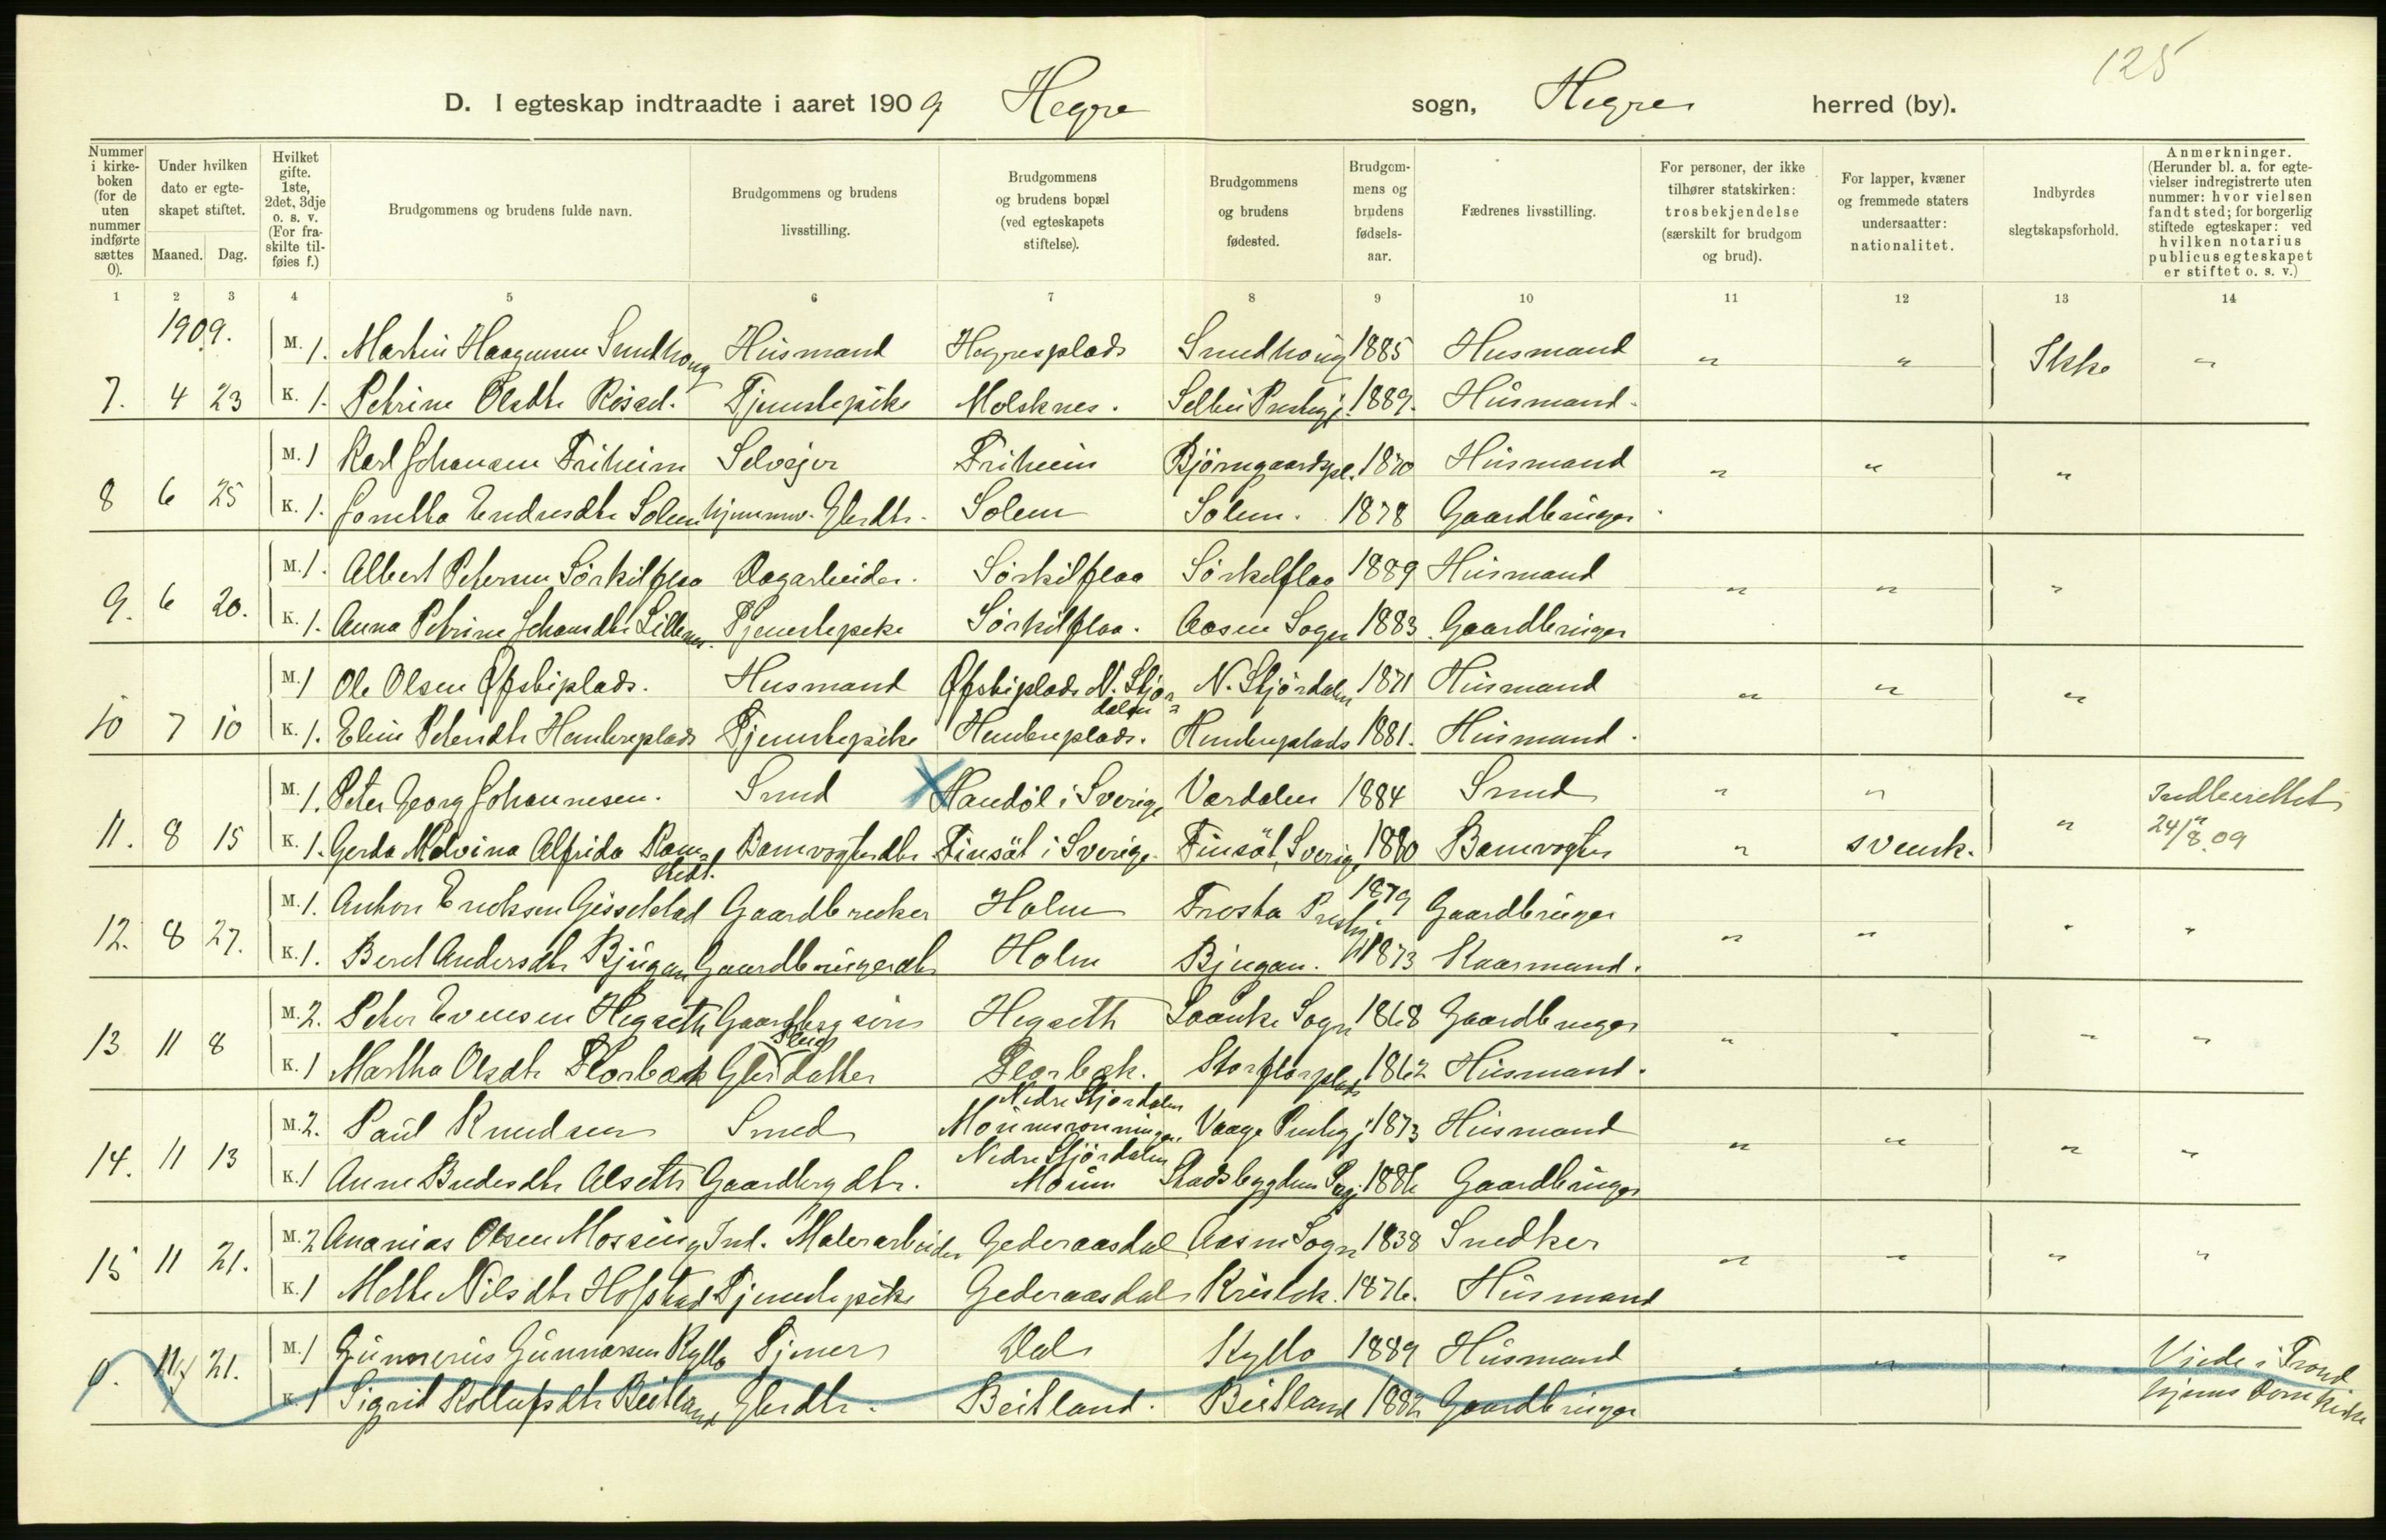 125
D. I egteskap indtraadte i aaret 1909 Hegre sogn, Hegre herred (by).
Nummer i kirke-boken (for de uten nummer indførte sættes 0).
Under hvilken dato er egte-skapet stiftet.
Maaned. Dag.
Hvilket gifte. 1ste, 2det, 3dje o. s. v. (For fra-skilte til-føies f.)
Brudgommens og brudens fulde navn.
Brudgommens og brudens livsstilling.
Brudgommens og brudens bopæl (ved egteskapets stiftelse).
Brudgommens og brudens fødested.
Brudgom-mens og brudens fødsels-aar.
Fædrenes livsstilling.
For personer, der ikke tilhører statskirken: trosbekjendelse (særskilt for brudgom og brud).
For lapper, kvæner og fremmede staters undersaatter: nationalitet.
Indbyrdes slegtskapsforhold.
Anmerkninger. (Herunder bl. a. for egte-vielser indregistrerte uten nummer: hvor vielsen fandt sted; for borgerlig stiftede egteskaper: ved hvilken notarius publicus egteskapet er stiftet o. s. v.)
1 2 3 4 5 6 7 8 9 10 11 12 13 14
1909.
M. 1. Martin Haagensen Smedhoug Husmand Hegresplads Smedhoug 1885 Husmand " " Ikke "
7. 4 23 K. 1. Petrine Olsdtr Tjenestepike Molsknes. Selbu Prestegj. 1889. Husmand.
M. 1 Karl Johansen Friheim Selveier Friheim Bjørngaardspl. 1870 Husmand " " "
8 6 25 K. 1. Endresdtr Solem hjemmev. Gbrdtr. Solem Solem. 1878 Gaardbruger.
M. 1. Albert Petersen Sörkilflaa Dagarbeider. Sörkilflaa Sörkilflaa 1889 Husmand " " "
9. 6 20. K. 1. Anna Petrine Johansdtr Tjenestepike Sörkilflaa. Aasen Sogn 1883. Gaardbruger
M. 1 Ole Olsen Øfstiplads. Husmand Øfstiplads N. Stjördalen N. Stjördalen 1871 Husmand " " "
10 7 10 K. 1. Eline Petersdtr Hembreplads Tjenestepike Hembreplads. Hembreplads 1881. Husmand.
M. 1. Peter Georg Johannesen. Smed Handöl i Sverige Værdalen 1884 Smed " " Indberettet
11. 8 15 K. 1. Gerda Malvina Alfrida Ramstedt. Banevogterdtr Finsät i Sverige. Finsät, Sverige 1880 Banevogter " svensk. " 24/8.09
M. 1. Anton Ericksen Gisselstad Gaardbruker Holm Frosta Prestegj. 1879 Gaardbruger
12. 8 27. K. 1. Beret Andersdtr Bjugan Gaardbrugerdtr Holm Bjugan. 1873 Kaarmand. " " " "
M. 2. Peter Evensen Hegseth Gaardbrg sön Hegseth Skogn 1868 Gaardbruger
13 11 8 K. 1 Martha Olsdtr Florbæk datter Florbæk. Storflorplads 1862 Husmand. " " " "
M. 2. Paul Knudsen Smed Nedre Stjørdalen Vaage Prestegj. 1873 Husmand
14. 11 13 K. 1 Anne Alseth Gaardbrg dtr. Nedre Stjördalen Stadsbygden Pgj. 1886 Gaardbruger " " " "
M. 2 Ananias Olsen Mossing Ind. Malerarbeider Gederaasdal Aasen Sogn 1838 Snedker
15 11 21. K. 1 Mette Nilsdtr Hofstad Tjenestepike Gederaasdal 1876. Husmand " " " "
M. 1 Gunnerius Gunnarsen Kyllo Tjener Dal Kyllo 1889 Husmand " " " Viede i Trond
0. 11 21. K. 1 Sigrid Rollafsdtr Beitland Gbrdtr. Beitland. Beitland 1882 Gaardbruger hjems Domkirke